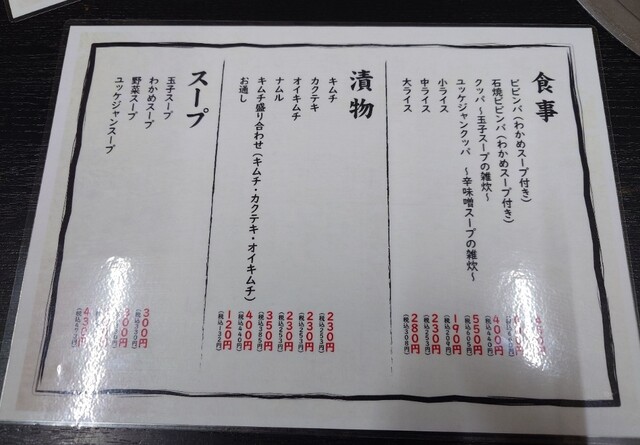 食事
ビビンバ(わかめスープ付き)
石焼ビビンバ(わかめスープ付き)
クッパ ～玉子スープの雑炊～ 400円(税込440円)
ユッケジャンクッパ ～辛味噌スープの雑炊～ 550円(税込605円)
小ライス 190円(税込209円)
中ライス 230円(税込253円)
大ライス 280円(税込308円)
漬物
キムチ 230円(税込253円)
カクテキ 230円(税込253円)
オイキムチ 230円(税込253円)
ナムル 350円(税込385円)
キムチ盛り合わせ(キムチ・カクテキ・オイキムチ) 400円(税込440円)
お通し 120円(税込132円)
スープ
玉子スープ 300円(税込330円)
わかめスープ 300円
野菜スープ
ユッケジャンスープ